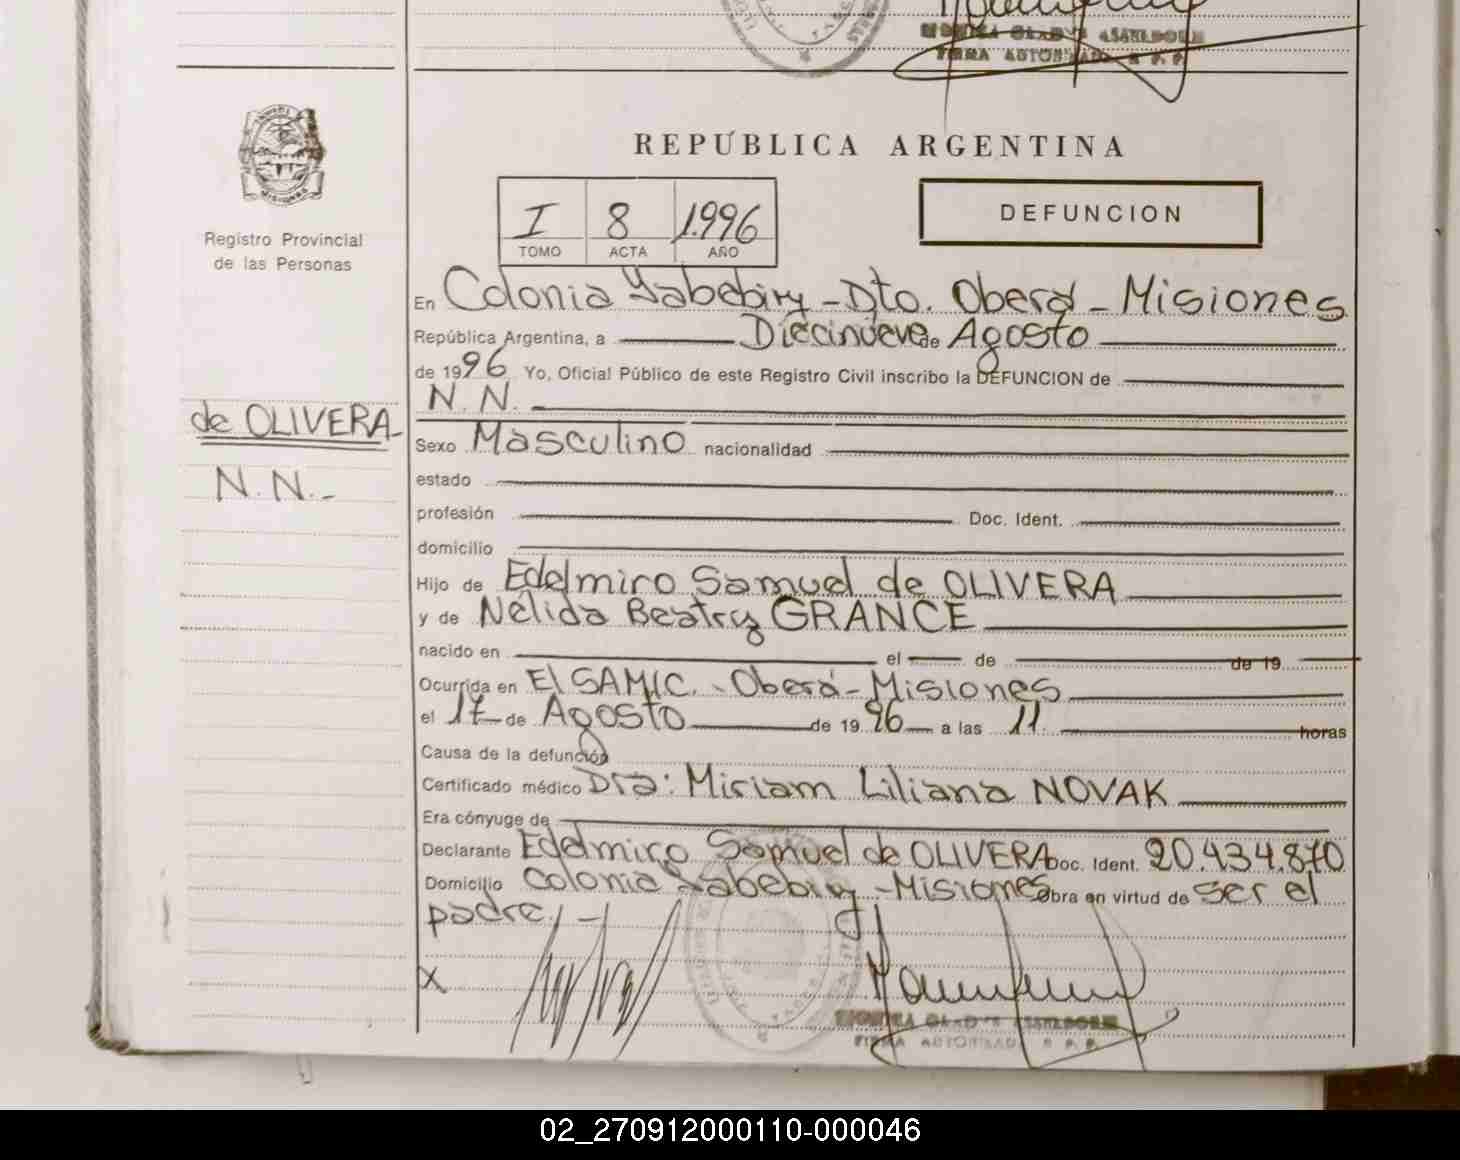 FIRMA AUTORIZADA R. P. P.
REPÚBLICA ARGENTINA
I 8 1.996
TOMO ACTA AÑO
DEFUNCION
Registro Provincial
de las Personas
En Colonia Yabebiry - Dto. Oberá - Misiones
República Argentina, a Diecinueve de Agosto
de 1996 Yo, Oficial Público de este Registro Civil inscribo la DEFUNCION de
N. N.
de OLIVERA
N. N. -
Sexo Masculino nacionalidad
estado
profesión Doc. Ident.
domicilio
Hijo de Edelmiro Samuel de OLIVERA
y de Nélida Beatriz GRANCE
nacido en el de de 19
Ocurrida en El SAMIC. - Oberá - Misiones
el 17 de Agosto de 1996 a las 11 horas
Causa de la defunción
Certificado médico Dra: Miriam Liliana NOVAK
Era cónyuge de
Declarante Edelmiro Samuel de OLIVERA Doc. Ident. 20.434.870
Domicilio Colonia Yabebiry - Misiones Obra en virtud de ser el
padre. / -
X
FIRMA AUTORIZADA R. P. P.
02_270912000110-000046